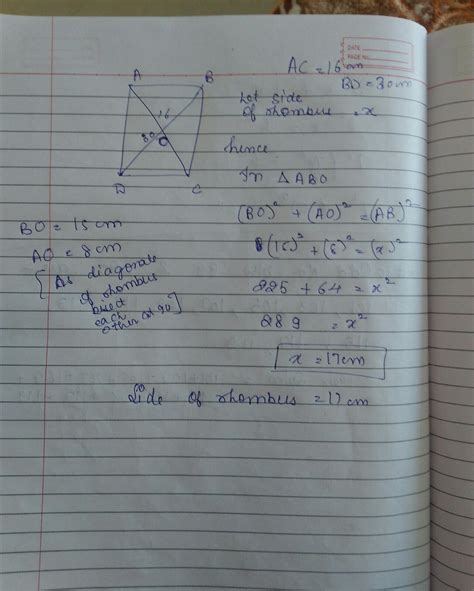 DATE
PAGE NO.
AC = 16 cm
BD = 30 cm
A B
16
30
O
D C
Let side
of rhombus = x
hence
In △ ABO
(BO)² + (AO)² = (AB)²
(15)² + (8)² = (x)²
225 + 64 = x²
289 = x²
x = 17cm
BO = 15 cm
AO = 8 cm
[As diagonals
of rhombus
bisect
each
other at 90]
Side of rhombus = 17 cm